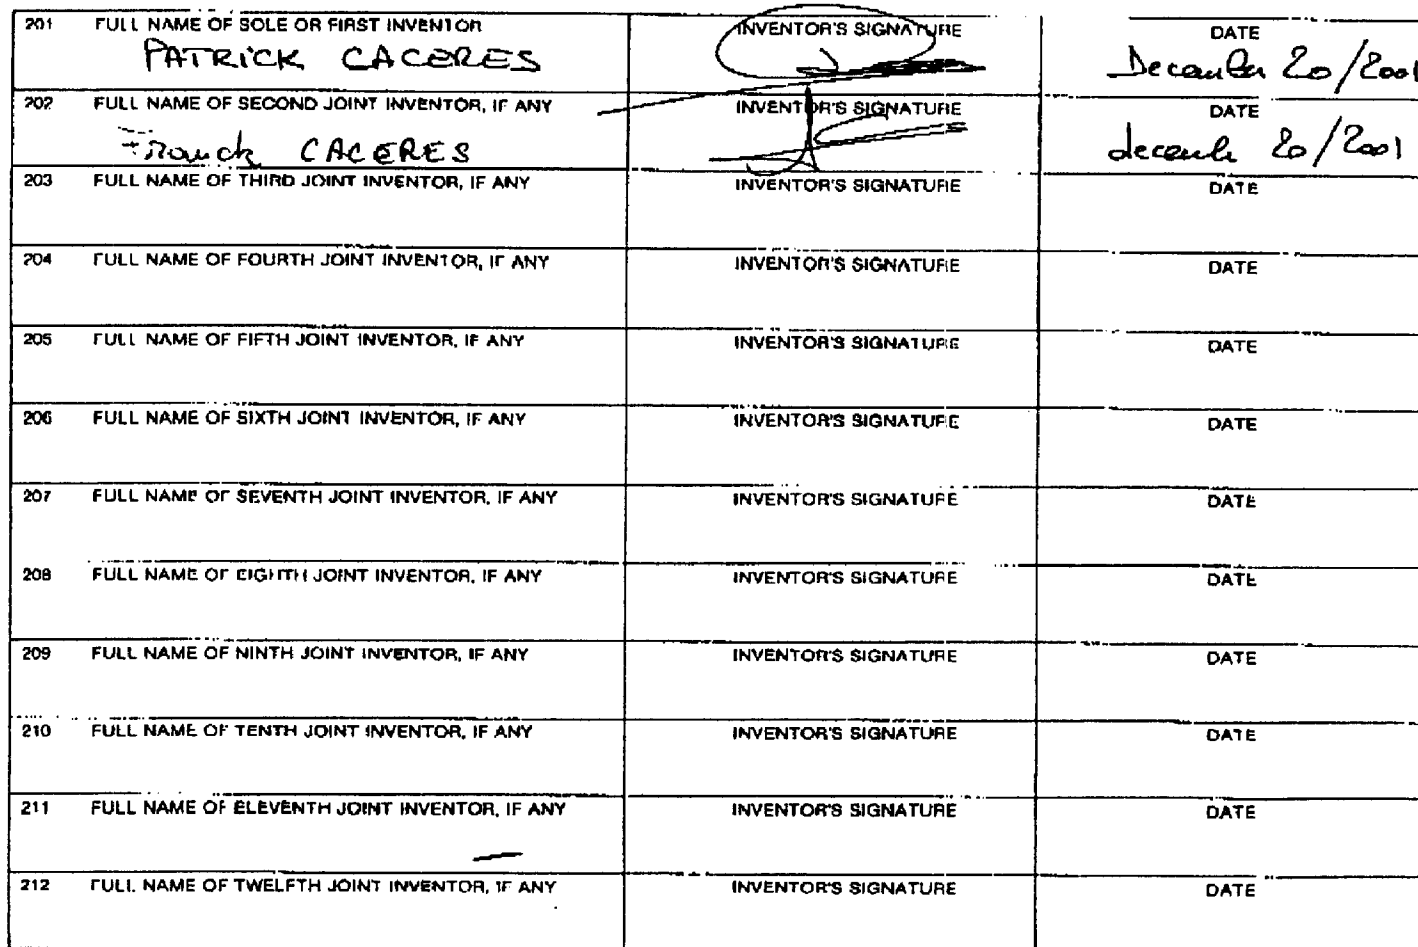 201 FULL NAME OF SOLE OR FIRST INVENTOR INVENTOR'S SIGNATURE DATE
PATRICK CACERES December 20/2001
202 FULL NAME OF SECOND JOINT INVENTOR, IF ANY INVENTOR'S SIGNATURE DATE
Franck CACERES decembe 20/2001
203 FULL NAME OF THIRD JOINT INVENTOR, IF ANY INVENTOR'S SIGNATURE DATE
204 FULL NAME OF FOURTH JOINT INVENTOR, IF ANY INVENTOR'S SIGNATURE DATE
205 FULL NAME OF FIFTH JOINT INVENTOR, IF ANY INVENTOR'S SIGNATURE DATE
206 FULL NAME OF SIXTH JOINT INVENTOR, IF ANY INVENTOR'S SIGNATURE DATE
207 FULL NAME OF SEVENTH JOINT INVENTOR, IF ANY INVENTOR'S SIGNATURE DATE
208 FULL NAME OF EIGHTH JOINT INVENTOR, IF ANY INVENTOR'S SIGNATURE DATE
209 FULL NAME OF NINTH JOINT INVENTOR, IF ANY INVENTOR'S SIGNATURE DATE
210 FULL NAME OF TENTH JOINT INVENTOR, IF ANY INVENTOR'S SIGNATURE DATE
211 FULL NAME OF ELEVENTH JOINT INVENTOR, IF ANY INVENTOR'S SIGNATURE DATE
212 FULL NAME OF TWELFTH JOINT INVENTOR, IF ANY INVENTOR'S SIGNATURE DATE